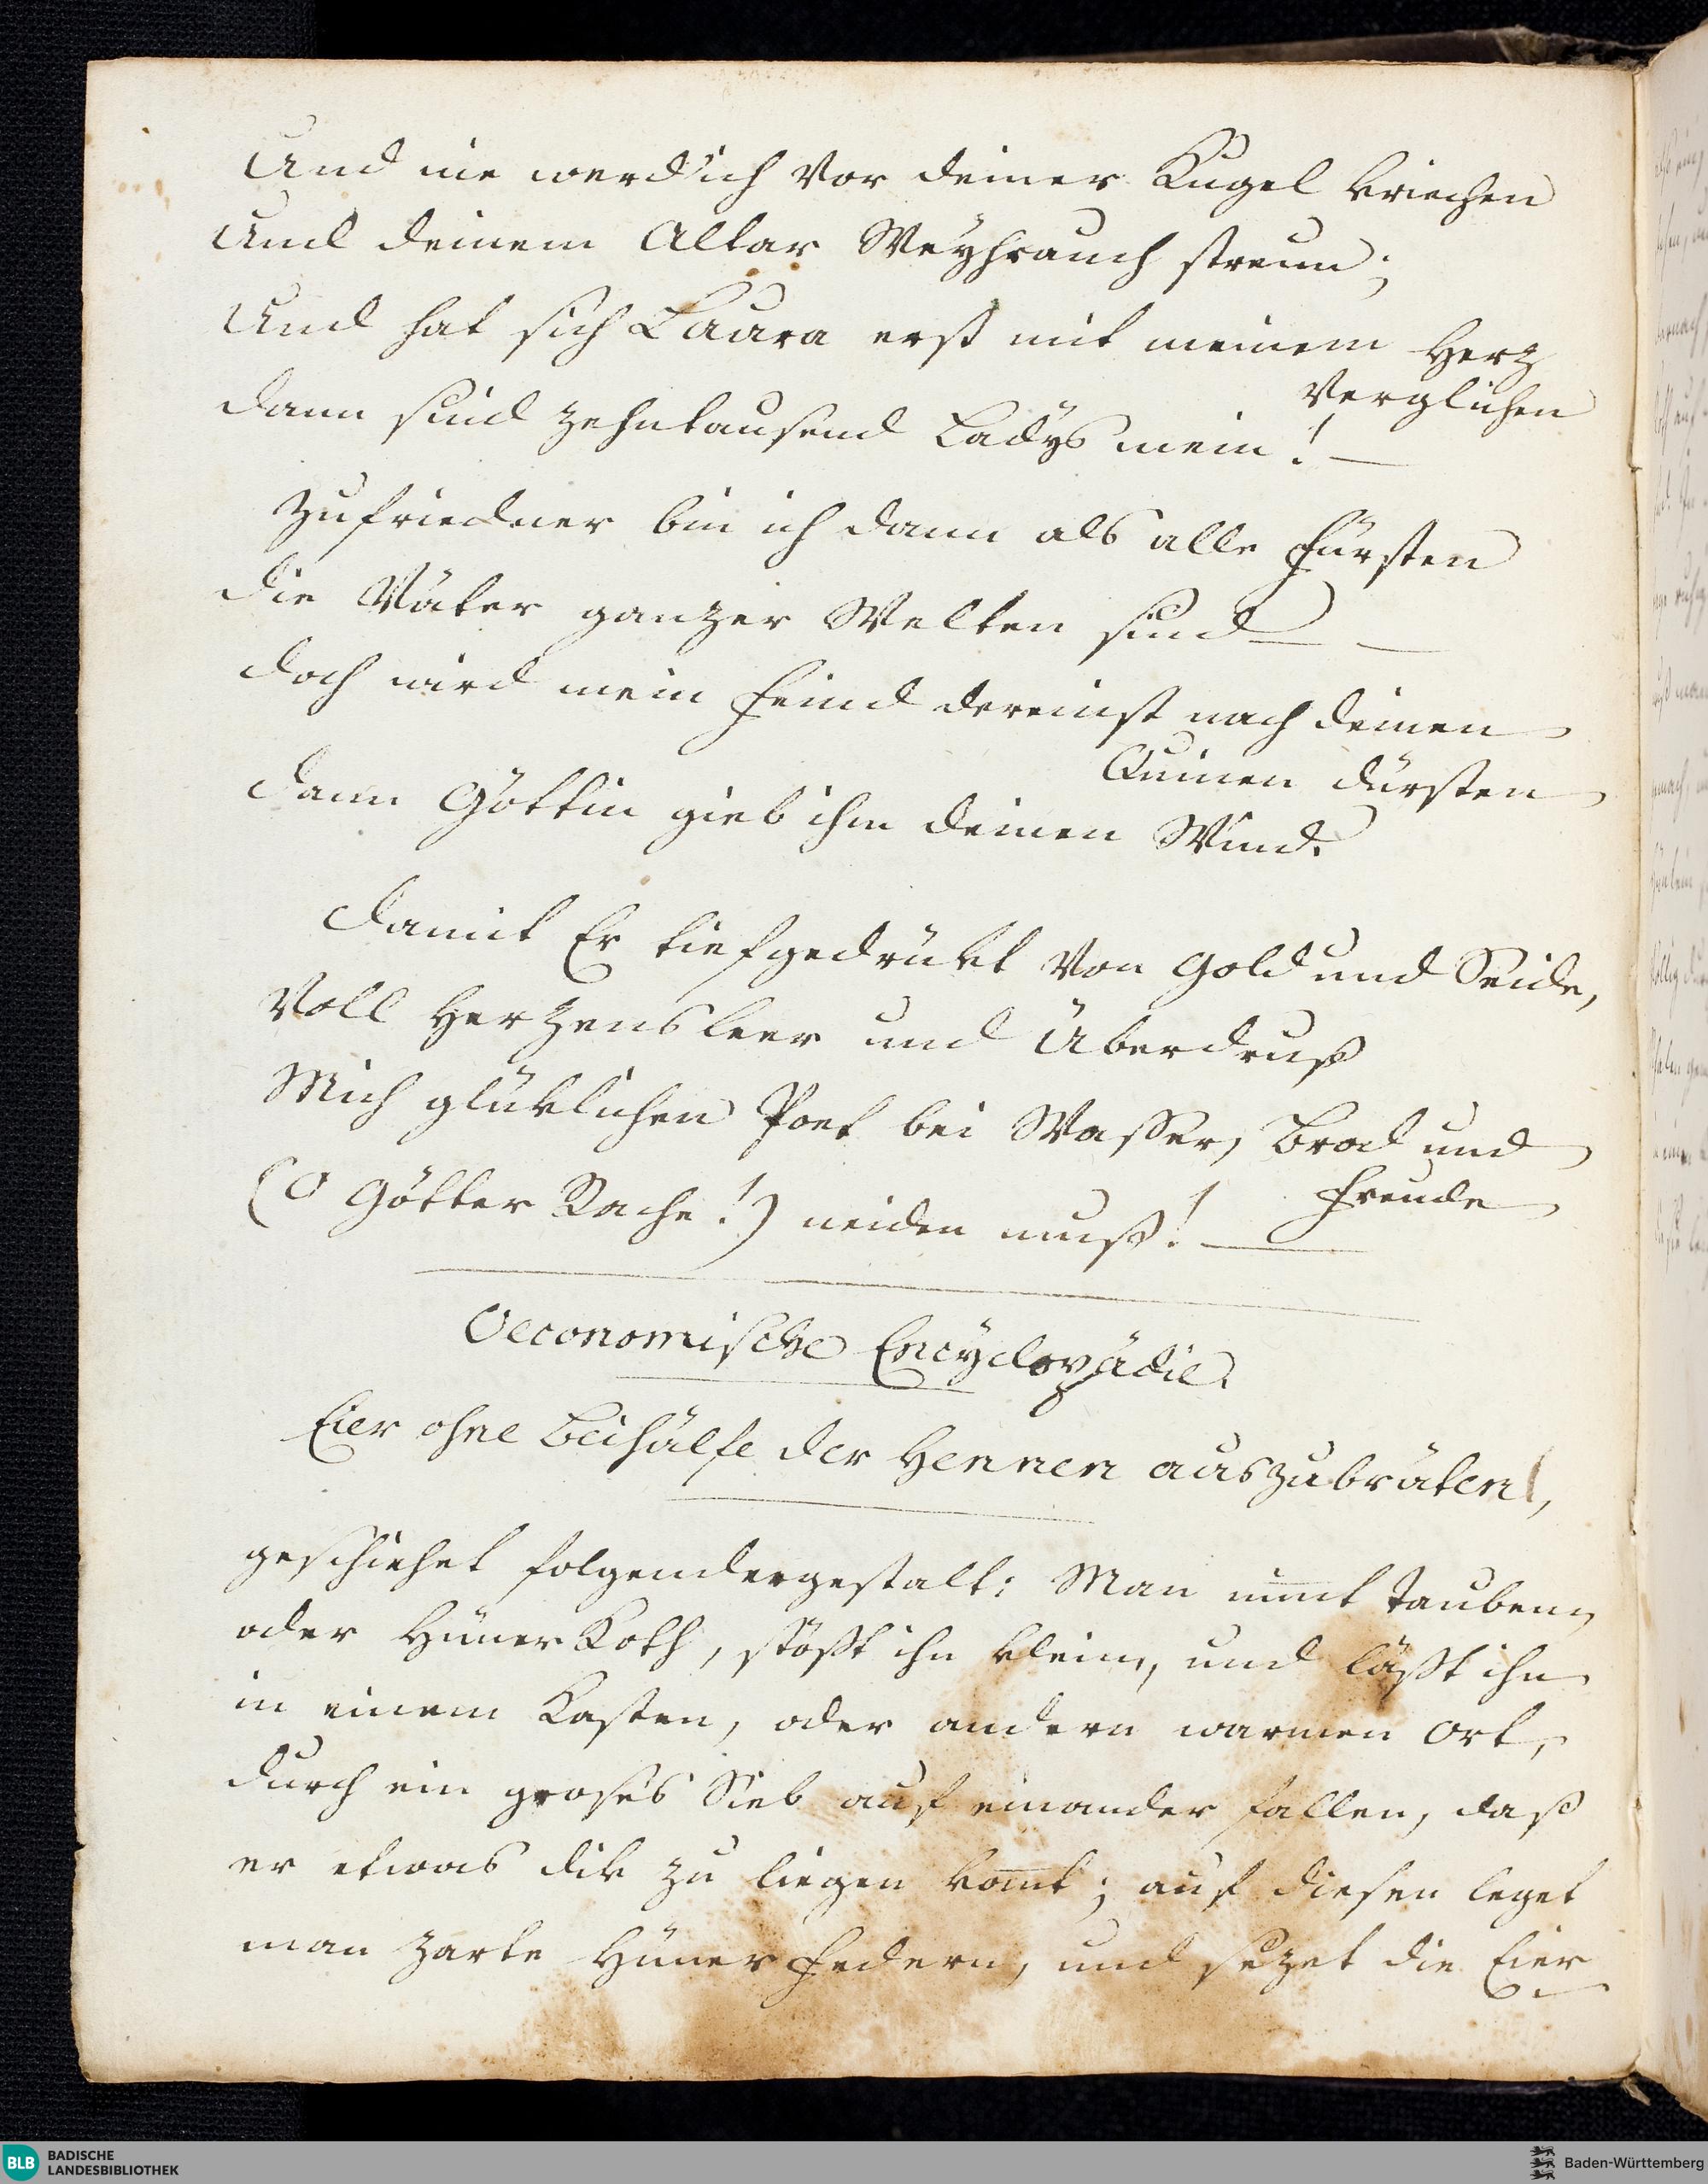 Und nie werd' ich vor deiner Kugel kriechen
Und deinem Altar Weyhrauch streun;
Und hat sich Laura erst mit meinem Herz
verglichen
dann sind zehntausend Ladÿs mein! —
Zufriedner bin ich dann als alle Fürsten
die Väter ganzer Welten sind —
doch wird mein Feind dereinst nach deinen
Ruinen dürsten
dann Göttin gieb ihm deinen Wind.
damit Er tiefgedrükt von Gold und Seide,
Voll Herzensleer und Überdruß
Mich glüklichen Poet bei Waßer, Brod und
Freude
(O Götter Rache!) neiden muß! —
Oeconomische Encÿclopädie.
Eier ohne Beihülfe der Hennen auszubrüten,
geschiehet folgendergestalt: Man nim̅t Tauben,
oder Hüner Koth, stößt ihn klein, und läßt ihn
in einem Kasten, oder andern warmen Ort,
durch ein groses Sieb auf einander fallen, daß
er etwas dik zu liegen kom̅t; auf diesen leget
man zarte Hüner Federn, und sezet die Eier
BLB BADISCHE
LANDESBIBLIOTHEK
Baden-Württemberg